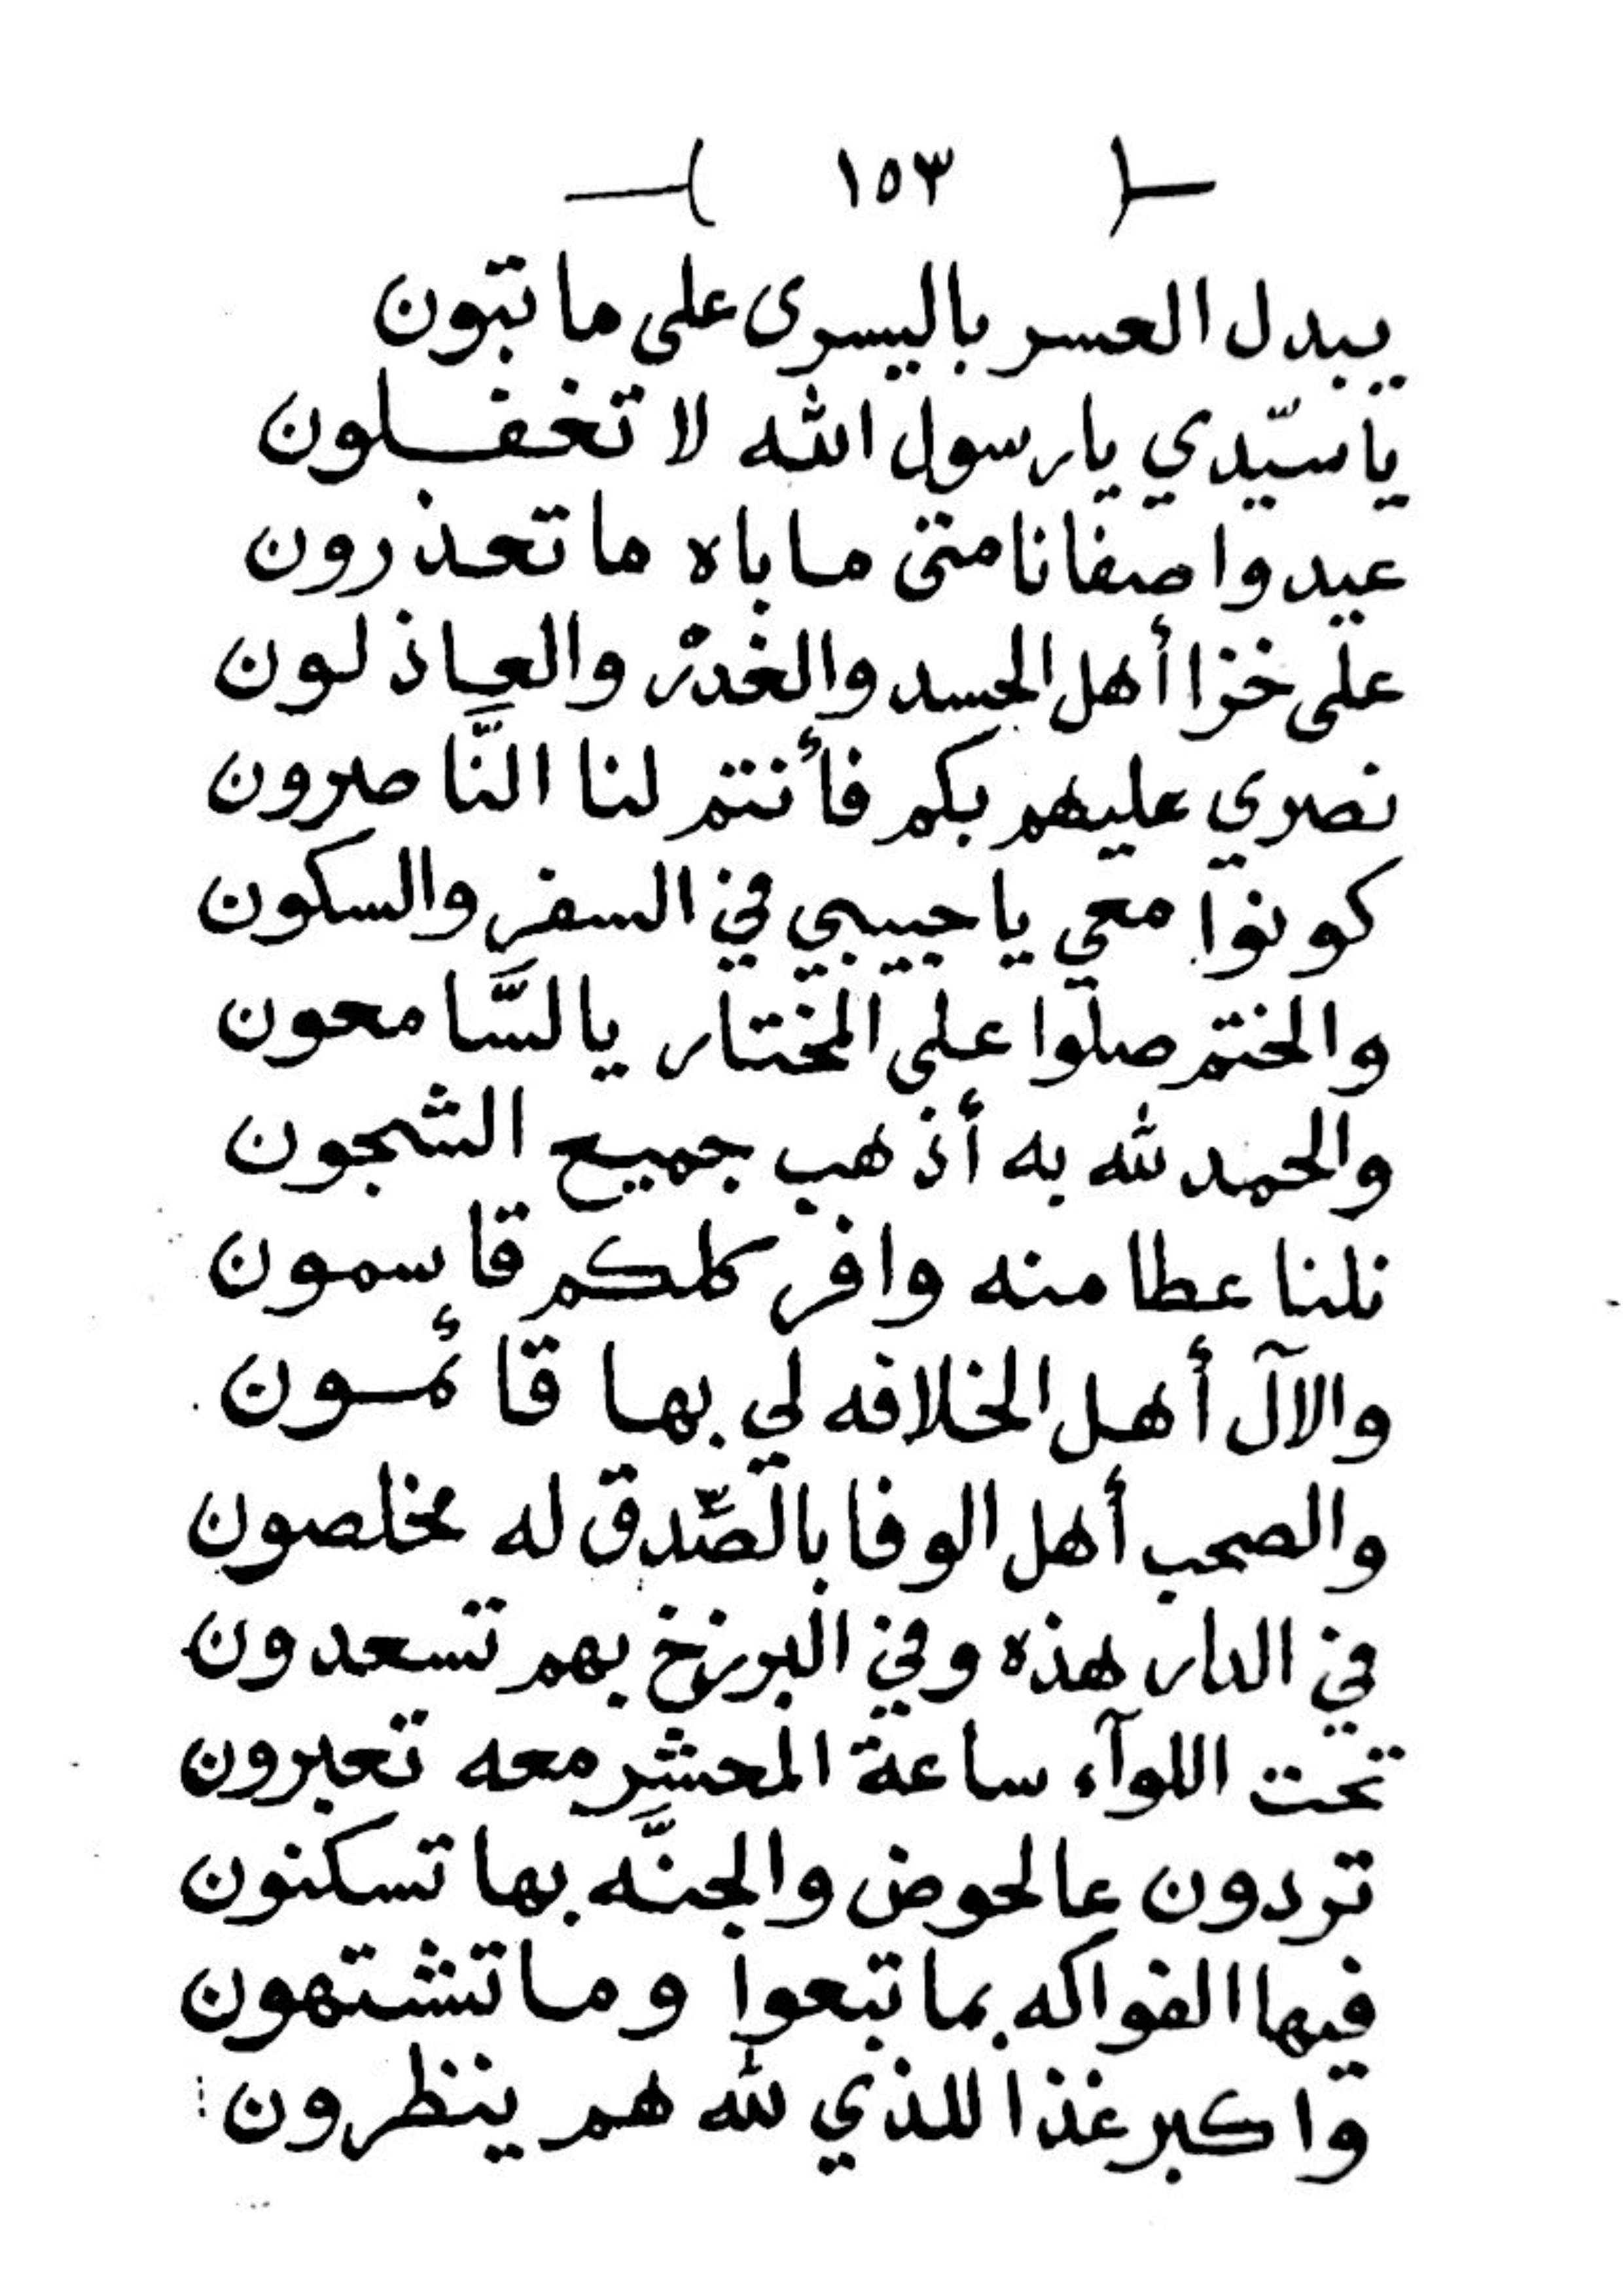 ١٥٣
يبدل العسر باليسرى على ما تبون
يا سيّدي يا رسول الله لا تخفلون
عيدوا صفانا متى ما باه ما تعذرون
على خزا أهل الحسد والغدر والعاذلون
نصري عليهم بكم فأنتم لنا النَّاصرون
كونوا معي يا حبيبي في السفر والسكون
والختم صلوا على المختار يا السَّامعون
والحمد لله به أذهب جميع الشجون
نلنا عطا منه وافر كلكم قاسمون
والآل أهل الخلافه لي بها قائمون
والصحب أهل الوفا بالصِّدق له مخلصون
في الدار هذه وفي البرزخ بهم تسعدون
تحت اللوآء ساعة المحشر معه تعبرون
تردون عالحوض والجنَّه بها تسكنون
فيها الفواكه بما تبعوا وما تشتهون
واكبر غذا للذي لله هم ينظرون